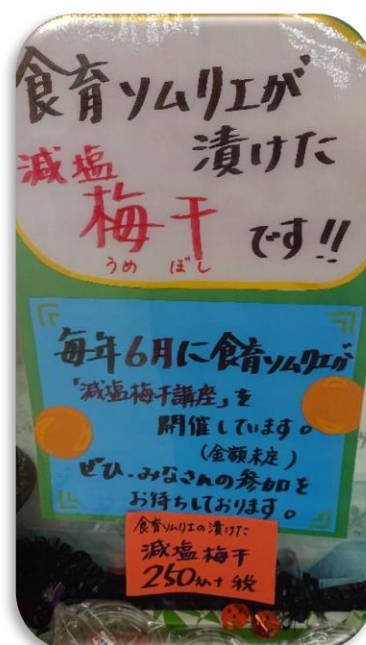 食育ソムリエが
漬けた
減塩
梅干
です!!
うめ ぼし
毎年6月に食育ソムリエが
「減塩梅干講座」を
開催しています。
(金額未定)
ぜひ、みなさんの参加を
お待ちしております。
食育ソムリエの漬けた
減塩梅干
250円+税